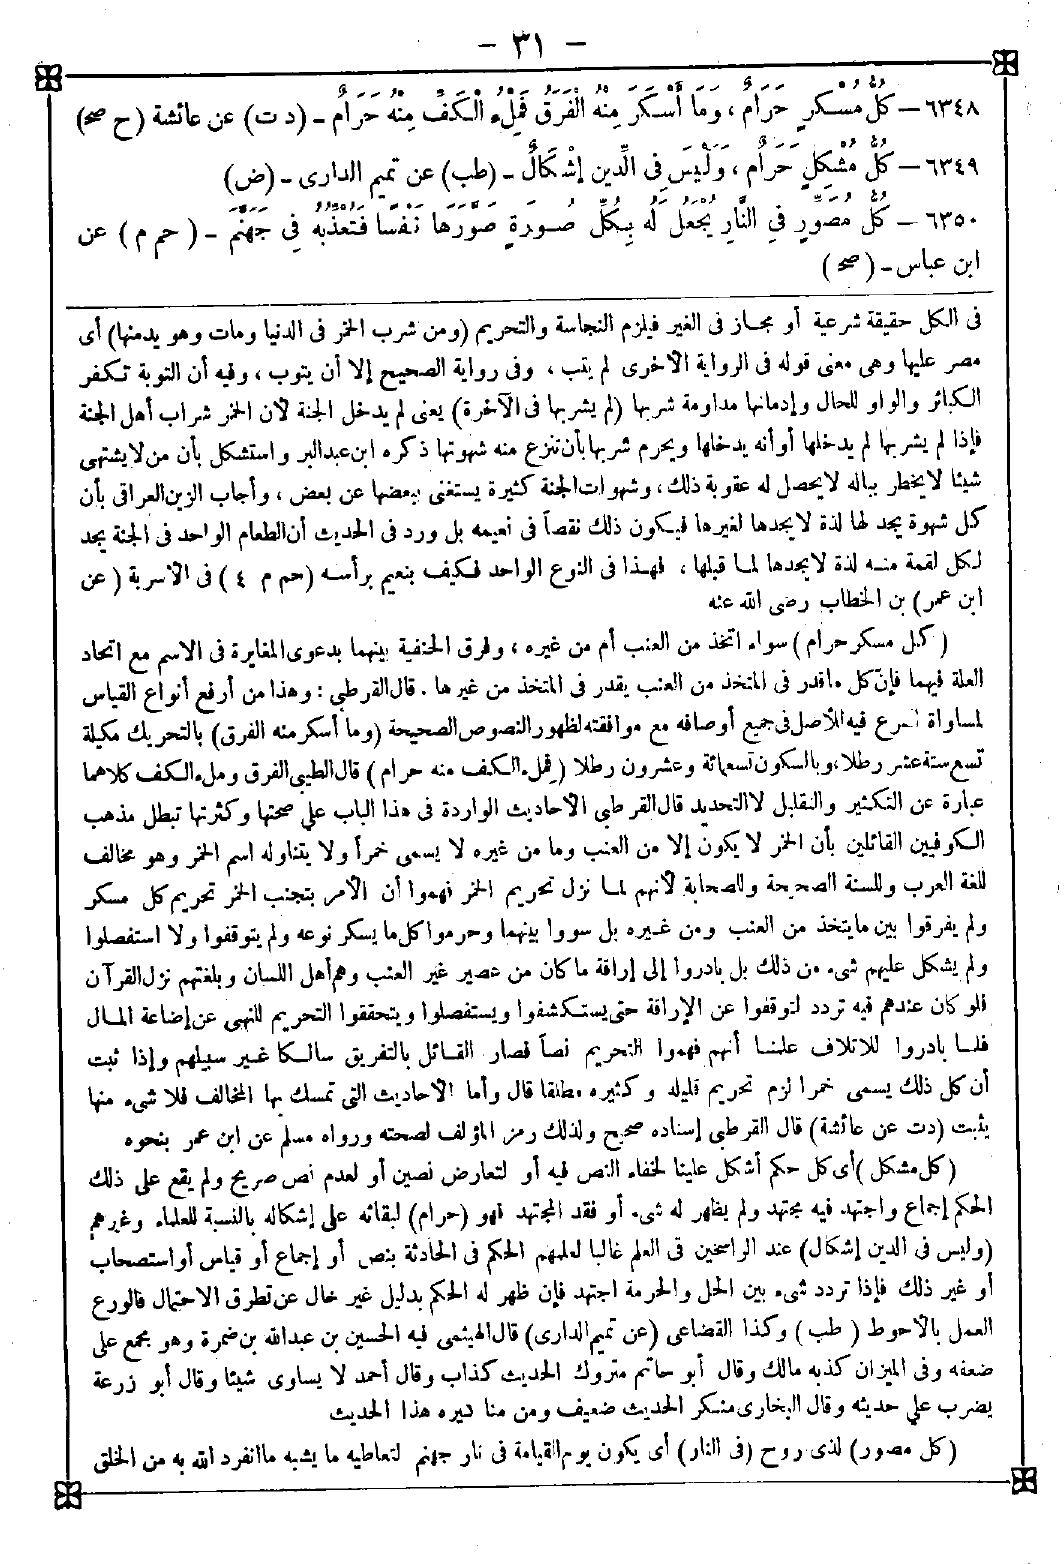 - ٣١ -
٦٣٤٨ - كُلُّ مُسْكِرٍ حَرَامٌ ، وَمَا أَسْكَرَ مِنْهُ الْفَرَقُ فَمِلْءُ الْكَفِّ مِنْهُ حَرَامٌ - (د ت) عن عائشة (ح صح)
٦٣٤٩ - كُلُّ مُشْكِلٍ حَرَامٌ ، وَلَيْسَ فِى الدِّينِ إِشْكَالٌ - (طب) عن تميم الدارى - (ض)
٦٣٥٠ - كُلُّ مُصَوِّرٍ فِى النَّارِ يُجْعَلُ لَهُ بِكُلِّ صُورَةٍ صَوَّرَهَا نَفْسًا فَتُعَذِّبُهُ فِى جَهَنَّمَ - ( حم م ) عن
ابن عباس - ( صح )
فى الكل حقيقة شرعية أو مجاز فى الغير فيلزم النجاسة والتحريم (ومن شرب الخمر فى الدنيا ومات وهو يدمنها) أى
مصر عليها وهى معنى قوله فى الرواية الأخرى لم يتب ، وفى رواية الصحيح إلا أن يتوب ، وفيه أن التوبة تكفر
الكبائر والواو للحال وإدمانها مداومة شربها (لم يشربها فى الآخرة) يعنى لم يدخل الجنة لأن الخمر شراب أهل الجنة
فإذا لم يشربها لم يدخلها أو أنه يدخلها ويحرم شربها بأن تنزع منه شهوتها ذكره ابن عبد البر واستشكل بأن من لا يشتهى
شيئا لا يخطر بباله لا يحصل له عقوبة ذلك ، وشهوات الجنة كثيرة يستغنى ببعضها عن بعض ، وأجاب الزين العراقى بأن
كل شهوة يجد لها لذة لا يجدها لغيرها فيكون ذلك نقصاً فى نعيمه بل ورد فى الحديث أن الطعام الواحد فى الجنة يجد
لكل لقمة منه لذة لا يجدها لما قبلها ، فهذا فى النوع الواحد فكيف بنعيم برأسه (حم م ٤ ) فى الأشربة ( عن
ابن عمر) بن الخطاب رضى الله عنه
( كل مسكر حرام ) سواء اتخذ من العنب أم من غيره ، وفرق الحنفية بينهما بدعوى المغايرة فى الاسم مع اتحاد
العلة فيهما فإن كل ما قدر فى المتخذ من العنب يقدر فى المتخذ من غيرها . قال القرطبى : وهذا من أرفع أنواع القياس
لمساواة الفرع فيه للأصل فى جميع أوصافه مع موافقته لظهور النصوص الصحيحة (وما أسكر منه الفرق) بالتحريك مكيلة
تسع ستة عشر رطلا، وبالسكون تسعمائة وعشرون رطلا (فملء الكف منه حرام ) قال الطيبى الفرق وملء الكف كلاهما
عبارة عن التكثير والتقليل لا التحديد قال القرطبى الأحاديث الواردة فى هذا الباب على صحتها وكثرتها تبطل مذهب
الكوفيين القائلين بأن الخمر لا يكون إلا من العنب وما من غيره لا يسمى خمراً ولا يتناوله اسم الخمر وهو مخالف
للغة العرب وللسنة الصحيحة وللصحابة لأنهم لما نزل تحريم الخمر فهموا أن الأمر بتجنب الخمر تحريم كل مسكر
ولم يفرقوا بين ما يتخذ من العنب ومن غيره بل سووا بينهما وحرموا كل ما يسكر نوعه ولم يتوقفوا ولا استفصلوا
ولم يشكل عليهم شىء من ذلك بل بادروا إلى إراقة ما كان من عصير غير العنب وهم أهل اللسان وبلغتهم نزل القرآن
فلو كان عندهم فيه تردد لتوقفوا عن الإراقة حتى يستكشفوا ويستفصلوا ويتحققوا التحريم للنهى عن إضاعة المال
فلما بادروا للاتلاف علمنا أنهم فهموا التحريم نصاً فصار القائل بالتفريق سالكا غير سبيلهم وإذا ثبت
أن كل ذلك يسمى خمرا لزم تحريم قليله وكثيره مطلقا قال وأما الأحاديث التى تمسك بها المخالف فلا شىء منها
يثبت (دت عن عائشة) قال القرطبى إسناده صحيح ولذلك رمز المؤلف لصحته ورواه مسلم عن ابن عمر بنحوه
(كل مشكل) أى كل حكم أشكل علينا لخفاء النص فيه أو لتعارض نصين أو لعدم نص صريح ولم يقع على ذلك
الحكم إجماع واجتهد فيه مجتهد ولم يظهر له شىء أو فقد المجتهد فهو (حرام) لبقائه على إشكاله بالنسبة للعلماء وغيرهم
(وليس فى الدين إشكال) عند الراسخين فى العلم غالبا لعلمهم الحكم فى الحادثة بنص أو إجماع أو قياس أو استصحاب
أو غير ذلك فإذا تردد شىء بين الحل والحرمة اجتهد فإن ظهر له الحكم بدليل غير خال عن تطرق الاحتمال فالورع
العمل بالأحوط ( طب ) وكذا القضاعى (عن تميم الدارى) قال الهيثمى فيه الحسين بن عبد الله بن ضمرة وهو مجمع على
ضعفه وفى الميزان كذبه مالك وقال أبو حاتم متروك الحديث كذاب وقال أحمد لا يساوى شيئا وقال أبو زرعة
يضرب على حديثه وقال البخارى منكر الحديث ضعيف ومن مناكيره هذا الحديث
(كل مصور) لذى روح (فى النار) أى يكون يوم القيامة فى نار جهنم لتعاطيه ما يشبه ما انفرد الله به من الخلق